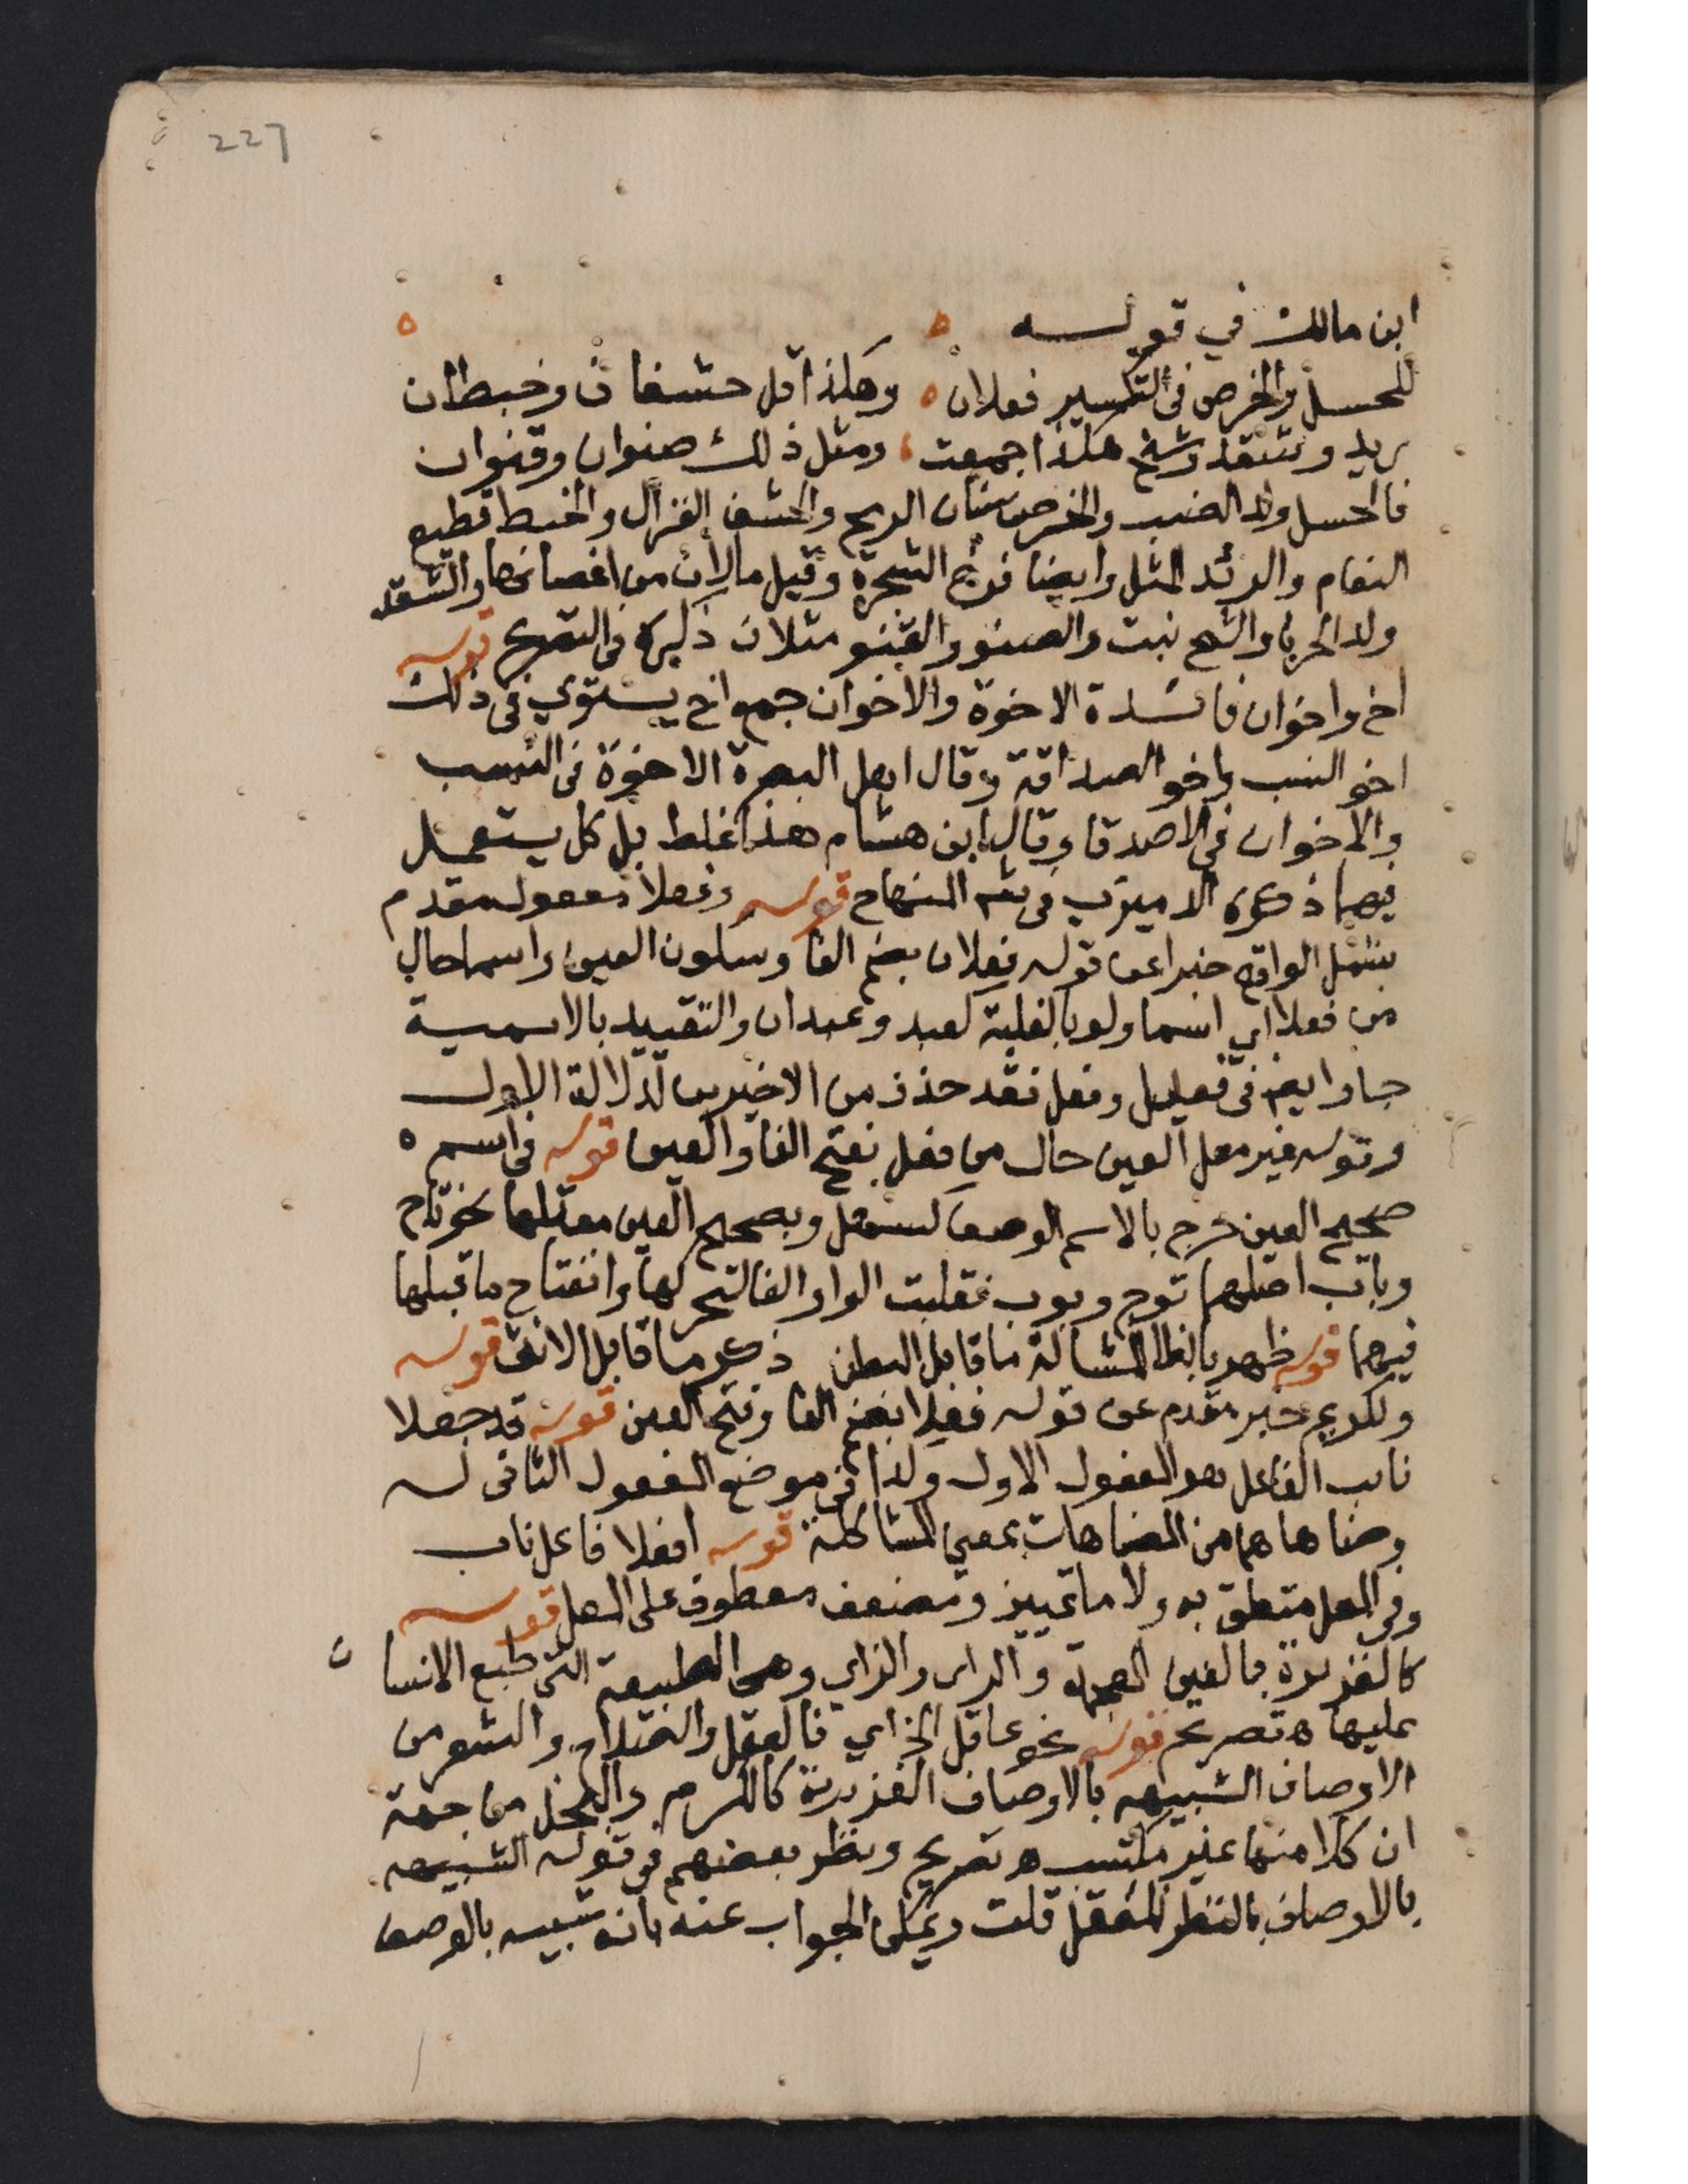 227
ابن مالك في قوله
للحسل والخرص في التكسير فعلان ه وهكذا قل حشفان وخيطان
ريد وشقذ وشيح هكذا جمعت ، ومثل ذلك صنوان وقنوان
فالحسل ولد الضب والخرص سنان الريح والحشف الغزال والخيط قطيع
النعام والرئد المثل وايضا فرخ الشجرة وقيل ما لان من اغصانها والشقذ
ولد الحربا والشيح نبت والصنو والقنو مثلان ذكره في التصريح قوله
اخ واخوان فائدة الاخوة والاخوان جمع اخ يستوي في ذلك
اخو النسب واخو الصداقة وقال اهل البصرة الاخوة في النسب
والاخوان في الاصدقا وقال ابن هشام هذا غلط بل كل يستعمل
فيهما ذكره الدميري في شرح المنهاج قوله وفعلا مفعول مقدم
بشمل الواقع خبرا عن قوله فعلان بضم الفا وسكون العين واسما حال
من فعلا اي اسما ولو بالغلبة كعبد وعبدان والتقييد بالاسمية
جا وايضا في فعيل وفعل فقد حذف من الاخيرين لدلالة الاول
وقوله غير معل العين حال من فعل بفتح الفا والعين قوله في اسم ه
صحيح العين خرج بالاسم الوصف كبطل وبصحيح العين معتلها نحو تاج
وباب اصلهما توج وبوب فقلبت الواو الفا لتحركها وانفتاح ما قبلها
فيهما قوله ظهر بالظا المشالة ما قابل البطن ذكر ما قابل الانثى قوله
ولكريم خبر مقدم عن قوله فعلا بضم الفا وفتح العين قوله قد جعلا
نائب الفاعل هو المفعول الاول ولذا في موضع المفعول الثاني له
وضاهاهما من المضاهات بمعني المشاكلة قوله افعلا فاعل ناب
وفي المعل متعلق به ولاما تمييز ومضعف معطوف على المعل قوله
كالغريزة بالغين المعجمة والراء والزاي وهي الطبيعة التي طبع الانسان
عليها ه تصريح قوله نحو عاقل الخ اي فالعقل والصلاح والشعر من
الاوصاف الشبيهه بالاوصاف الغزيرية كالكرم والبخل من جهة
ان كلا منها غير مكتسب ه تصريح ونظر بعضهم في قوله الشبيهه
بالاوصاف بالنظر للعقل قلت ويمكن الجواب عنه بانه شبيه بالوصف